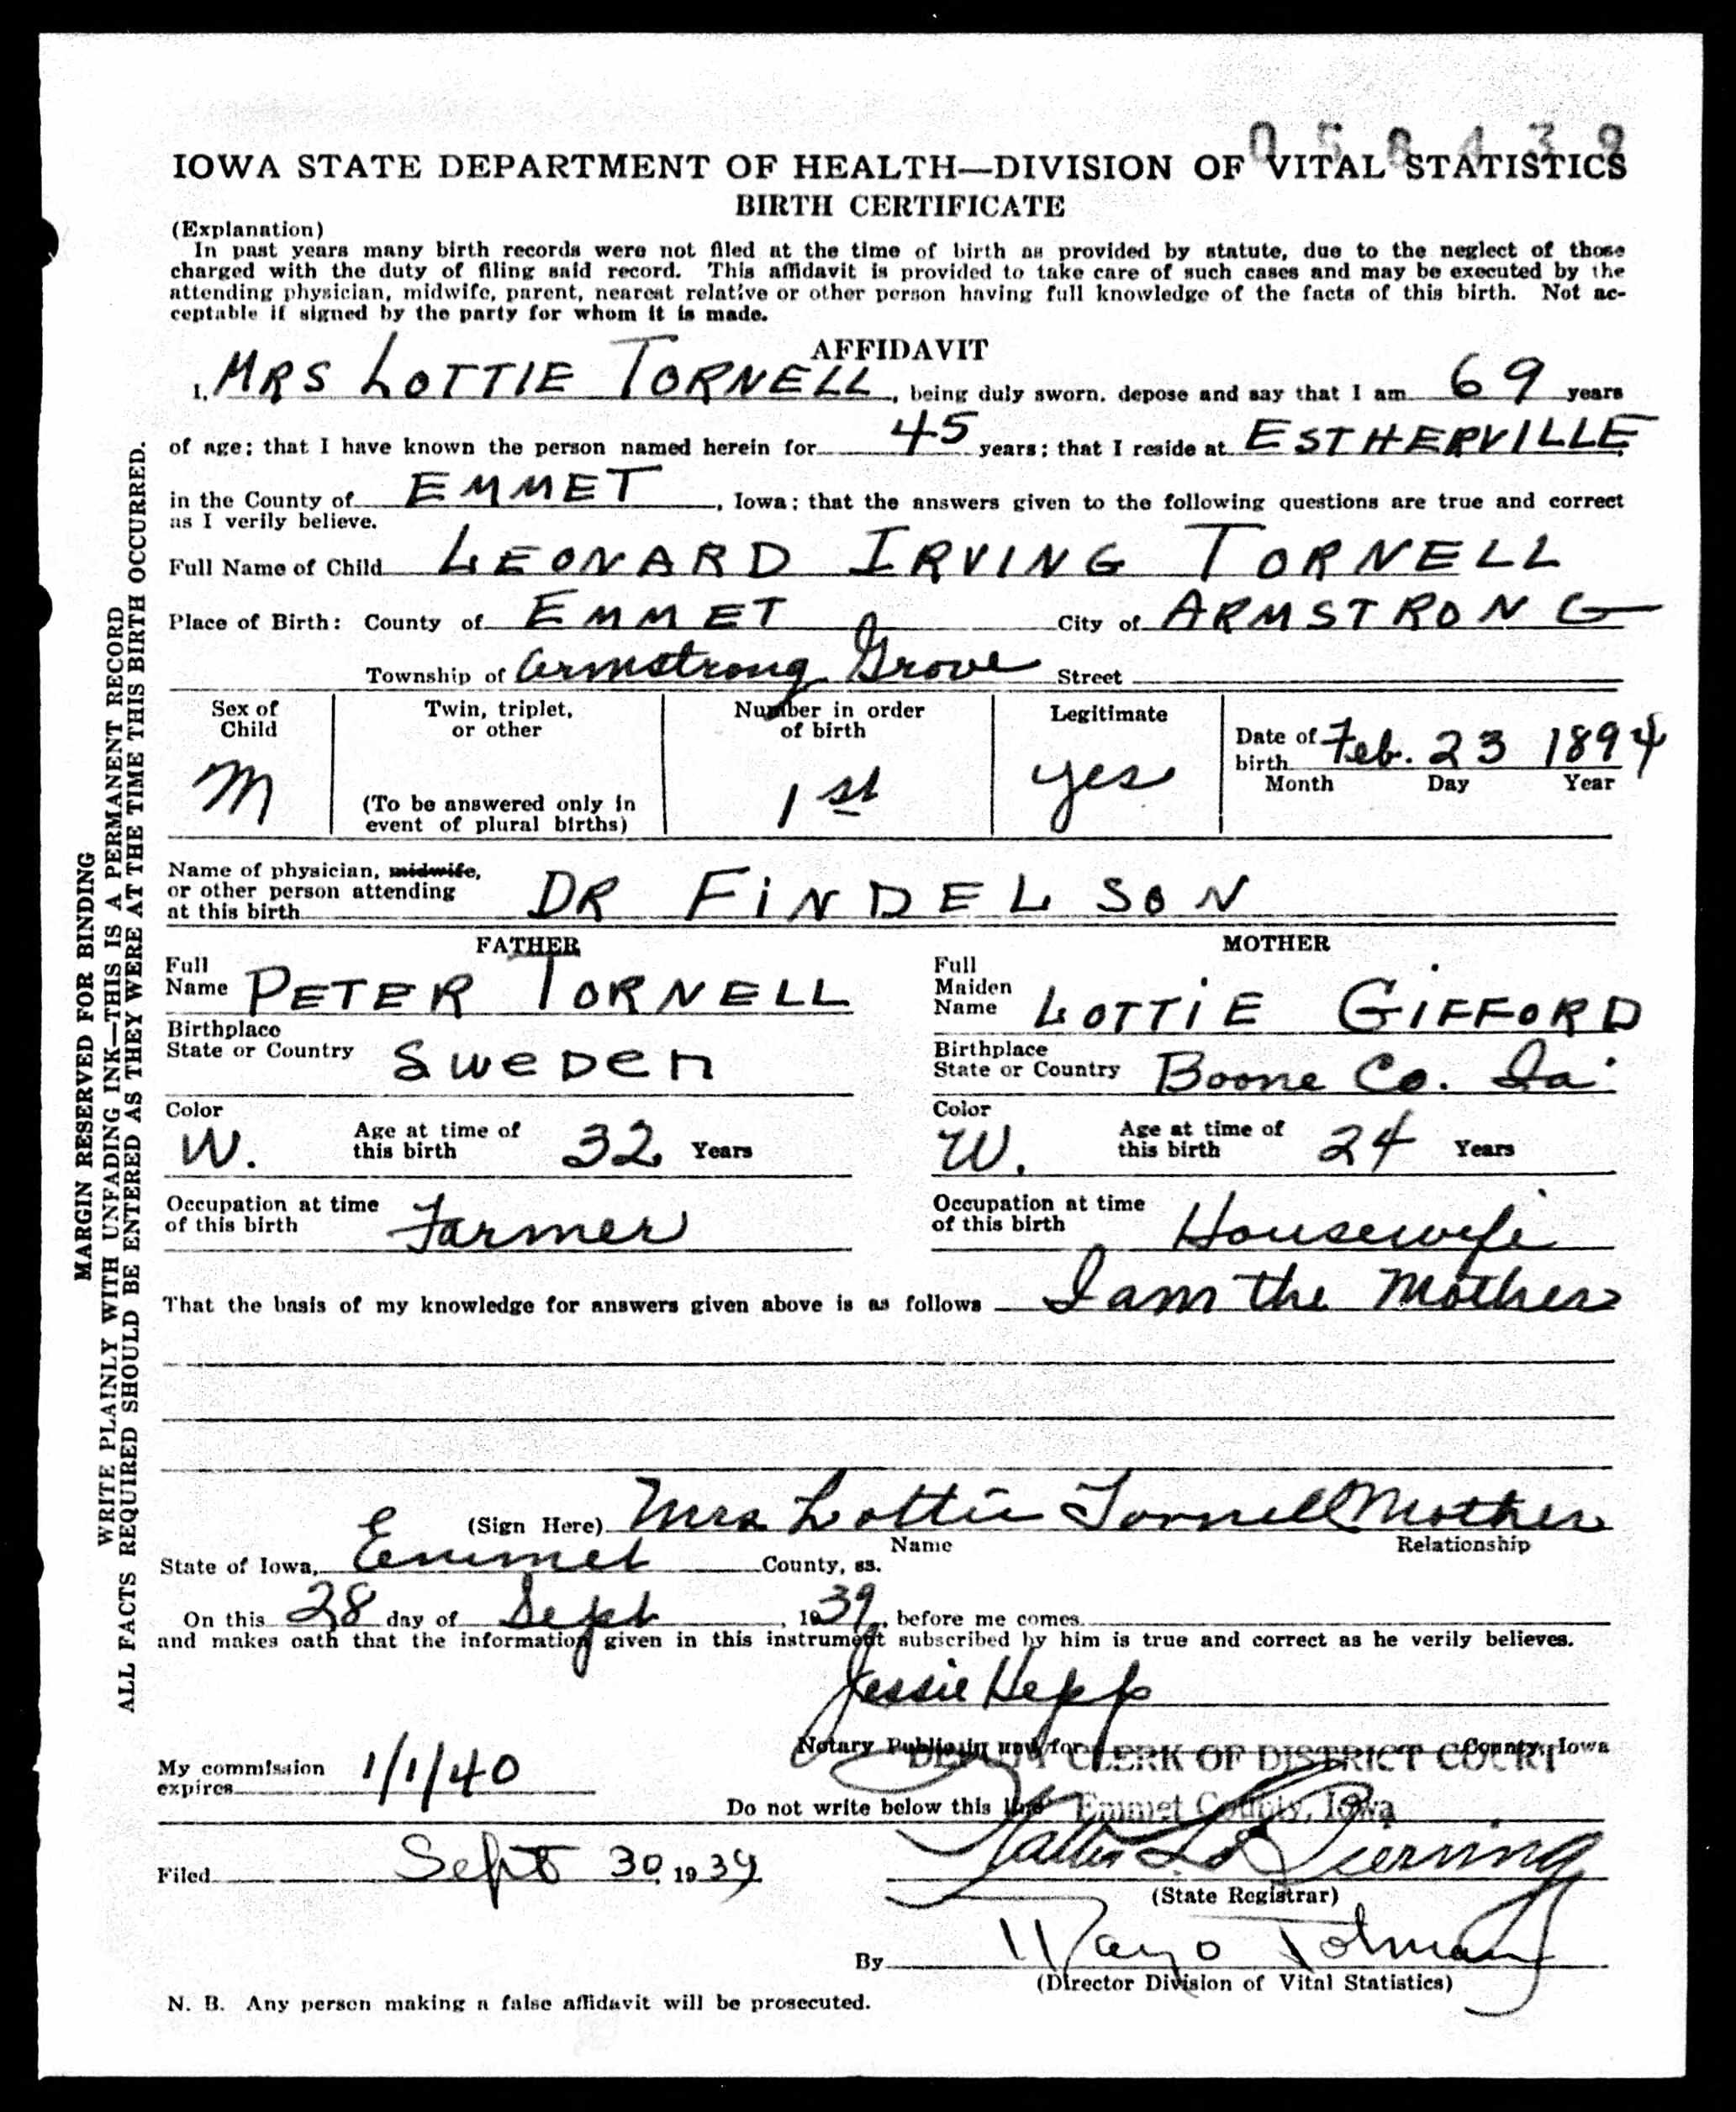 058439
IOWA STATE DEPARTMENT OF HEALTH—DIVISION OF VITAL STATISTICS
BIRTH CERTIFICATE
(Explanation)
In past years many birth records were not filed at the time of birth as provided by statute, due to the neglect of those
charged with the duty of filing said record. This affidavit is provided to take care of such cases and may be executed by the
attending physician, midwife, parent, nearest relative or other person having full knowledge of the facts of this birth. Not ac-
ceptable if signed by the party for whom it is made.
AFFIDAVIT
I, MRS LOTTIE TORNELL, being duly sworn, depose and say that I am 69 years
of age; that I have known the person named herein for 45 years; that I reside at ESTHERVILLE
in the County of EMMET, Iowa; that the answers given to the following questions are true and correct
as I verily believe.
Full Name of Child LEONARD IRVING TORNELL
Place of Birth: County of EMMET City of ARMSTRONG
Township of Armstrong Grove Street
Sex of Child M
Twin, triplet, or other (To be answered only in event of plural births)
Number in order of birth 1st
Legitimate yes
Date of birth Feb. 23 1894
Month Day Year
Name of physician, midwife,
or other person attending
at this birth DR FINDELSON
FATHER
Full Name PETER TORNELL
Birthplace State or Country SWEDEN
Color W. Age at time of this birth 32 Years
Occupation at time of this birth Farmer
MOTHER
Full Maiden Name LOTTIE GIFFORD
Birthplace State or Country Boone Co. Ia.
Color W. Age at time of this birth 24 Years
Occupation at time of this birth Housewife
That the basis of my knowledge for answers given above is as follows I am the Mother
(Sign Here) Mrs Lottie Tornell Mother
Name Relationship
State of Iowa, Emmet County, ss.
On this 28 day of Sept, 1939, before me comes
and makes oath that the information given in this instrument subscribed by him is true and correct as he verily believes.
Jessie Hepp
Notary Public in and for County, Iowa
DEPUTY CLERK OF DISTRICT COURT
Emmet County, Iowa
My commission expires 1/1/40
Do not write below this line
Filed Sept 30, 1939
Walter L. Bierring
(State Registrar)
By Mayo Tolman
(Director Division of Vital Statistics)
N. B. Any person making a false affidavit will be prosecuted.
MARGIN RESERVED FOR BINDING
WRITE PLAINLY WITH UNFADING INK—THIS IS A PERMANENT RECORD
ALL FACTS REQUIRED SHOULD BE ENTERED AS THEY WERE AT THE TIME THIS BIRTH OCCURRED.